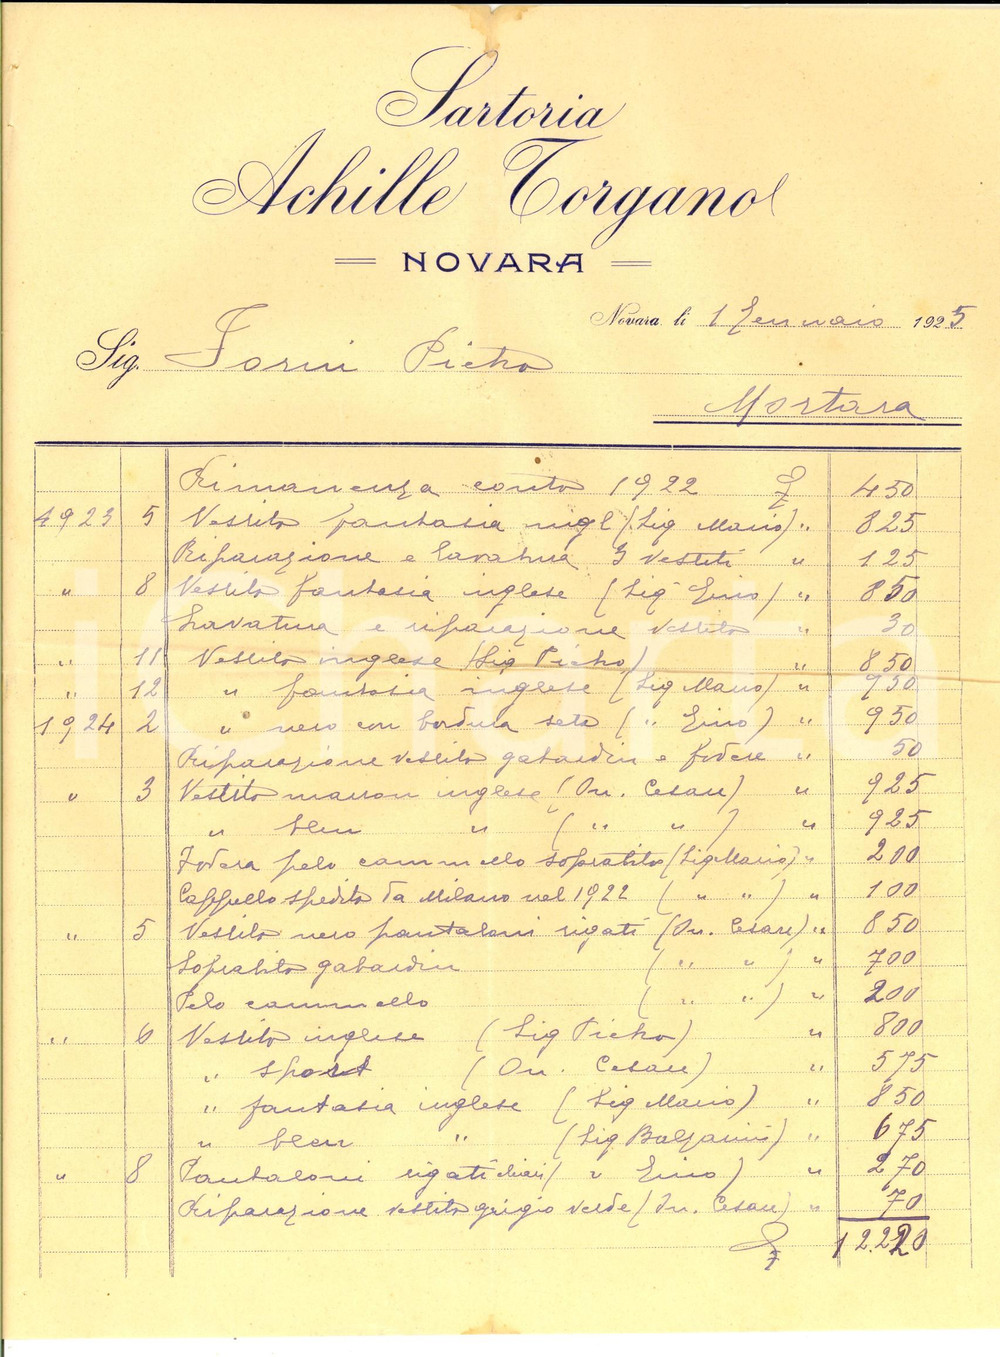 Sartoria
Achille Torgano
NOVARA
Novara li 1 Gennaio 1925
Sig. Forni Pietro
Mortara
Rimanenza conto 1922 £ 450
1923 5 Vestito fantasia ingl (Sig Mario) " 825
Riparazione e lavatura 3 vestiti " 125
" 8 Vestito fantasia inglese (Sig Gino) " 850
Lavatura e riparazione vestito " 30
" 11 Vestito inglese (Sig Pietro) " 850
" 12 " fantasia inglese (Sig Mario) " 950
1924 2 " nero con bordura seta ( " Gino) " 950
Riparazione vestito gabardin e fodere " 50
" 3 Vestito marron inglese (On. Cesare) " 925
" bleu " ( " " ) " 925
Fodera pelo cammello soprabito (Sig Mario) " 200
Cappello spedito da Milano nel 1922 ( " " ) " 100
" 5 Vestito nero pantaloni rigati (On. Cesare) " 850
Soprabito gabardin ( " " ) " 700
Pelo cammello ( " " ) " 200
" 6 Vestito inglese (Sig Pietro) " 800
" sport (On. Cesare) " 575
" fantasia inglese (Sig Mario) " 850
" bleu " (Sig Balzarini) " 675
" 8 Pantaloni rigati chiari ( " Gino) " 270
Riparazione vestito grigio verde (On. Cesare) " 70
£ 12.220